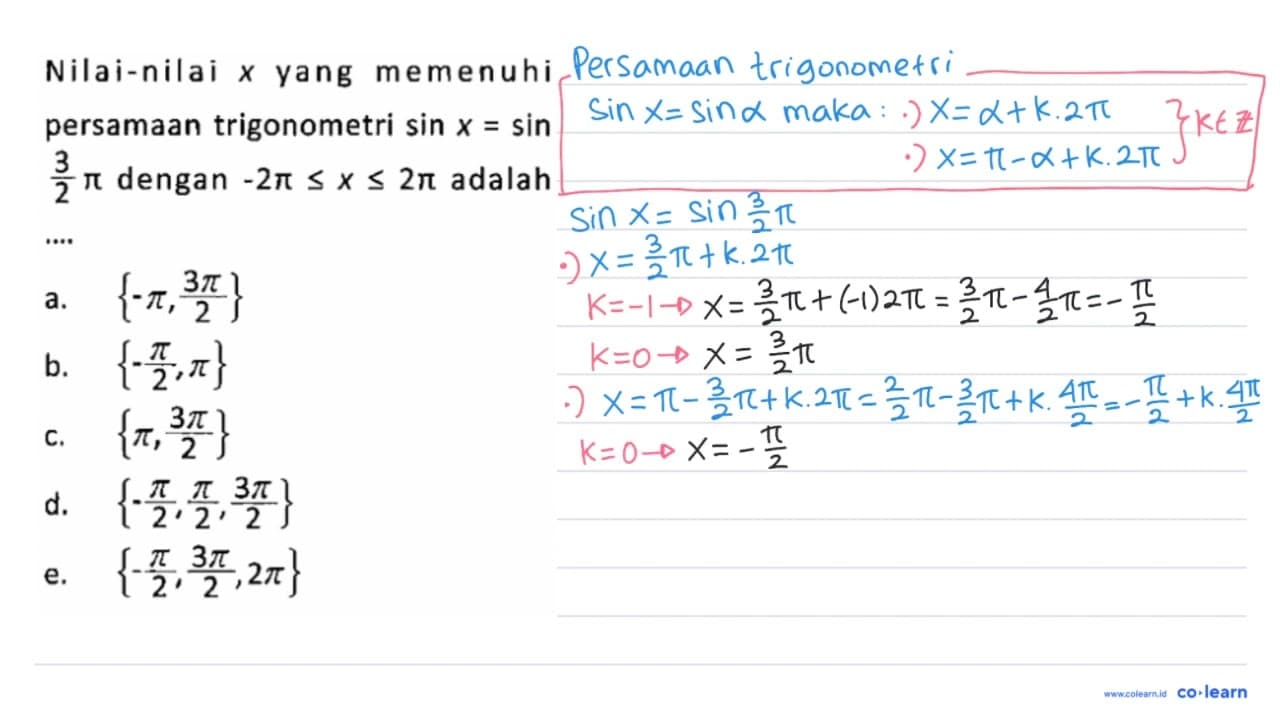 Nilai-nilai x yang memenuhi
persamaan trigonometri sin x = sin
3/2 π dengan -2π ≤ x ≤ 2π adalah
....
a. {-π, 3π/2}
b. {-π/2, π}
c. {π, 3π/2}
d. {-π/2, π/2, 3π/2}
e. {-π/2, 3π/2, 2π}
Persamaan trigonometri
sin x = sin α maka: •) x = α + k.2π } k ∈ Z
•) x = π - α + k.2π
sin x = sin 3/2 π
•) x = 3/2 π + k.2π
K=-1 → x = 3/2 π + (-1)2π = 3/2 π - 4/2 π = - π/2
k=0 → x = 3/2 π
•) x = π - 3/2 π + k.2π = 2/2 π - 3/2 π + k. 4π/2 = - π/2 + k. 4π/2
k=0 → x = - π/2
www.colearn.id co·learn